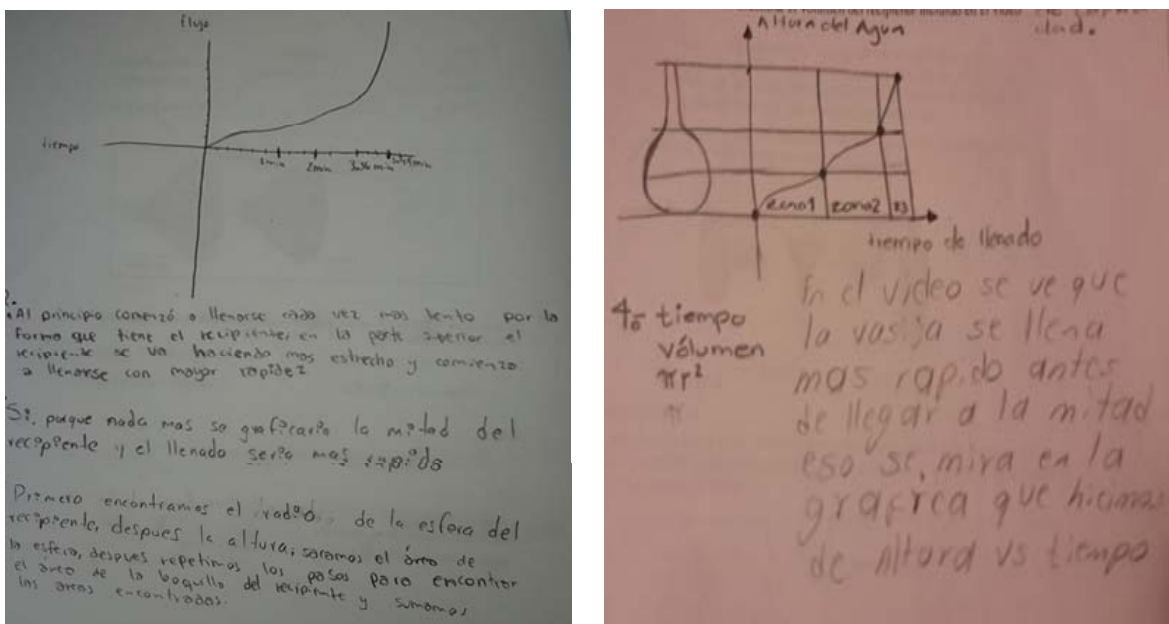 flujo
tiempo
1min
2min
Al principio comenzó a llenarse cada vez mas lento por la
forma que tiene el recipiente, en la parte superior el
recipiente se va haciendo mas estrecho y comienza
a llenarse con mayor rapidez
Si, porque nada mas se graficaria la mitad del
recipiente y el llenado seria mas rapido
Primero encontramos el radio de la esfera del
recipiente, despues la altura, sacamos el área de
la esfera, despues repetimos los pasos para encontrar
el area de la boquilla del recipiente y sumamos
las areas encontradas.
dad.
Altura del Agua
zona1
zona2
z3
tiempo de llenado
4.- tiempo
vólumen
πr²
En el video se ve que
la vasija se llena
mas rapido antes
de llegar a la mitad
eso se mira en la
grafica que hicimos
de Altura vs tiempo